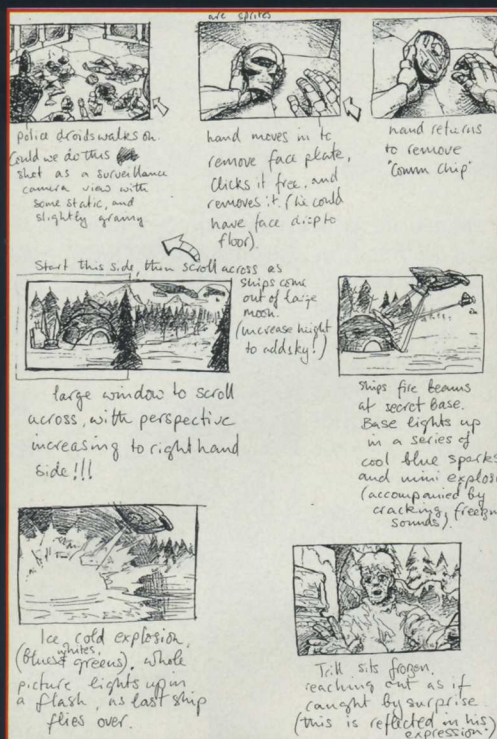 are sprites
police droids walks on.
Could we do this
shot as a surveillance
camera view with
some static, and
slightly grainy
hand moves in to
remove face plate,
Clicks it free, and
removes it. (We could
have face drop to
floor).
hand returns
to remove
"Comm Chip"
Start this side, then scroll across as
ships come
out of large
moon.
(increase height
to add sky!)
large window to scroll
across, with perspective
increasing to right hand
side!!!
Ships fire beams
at secret base.
Base lights up
in a series of
cool blue sparks
and mini explosi
(accompanied by
cracking, freezin
sounds).
Ice cold explosion,
(blues, whites, greens), whole
picture lights up in
a flash, as last ship
flies over.
Trill sits frozen,
reaching out as if
caught by surprise
(this is reflected in his
expression.)